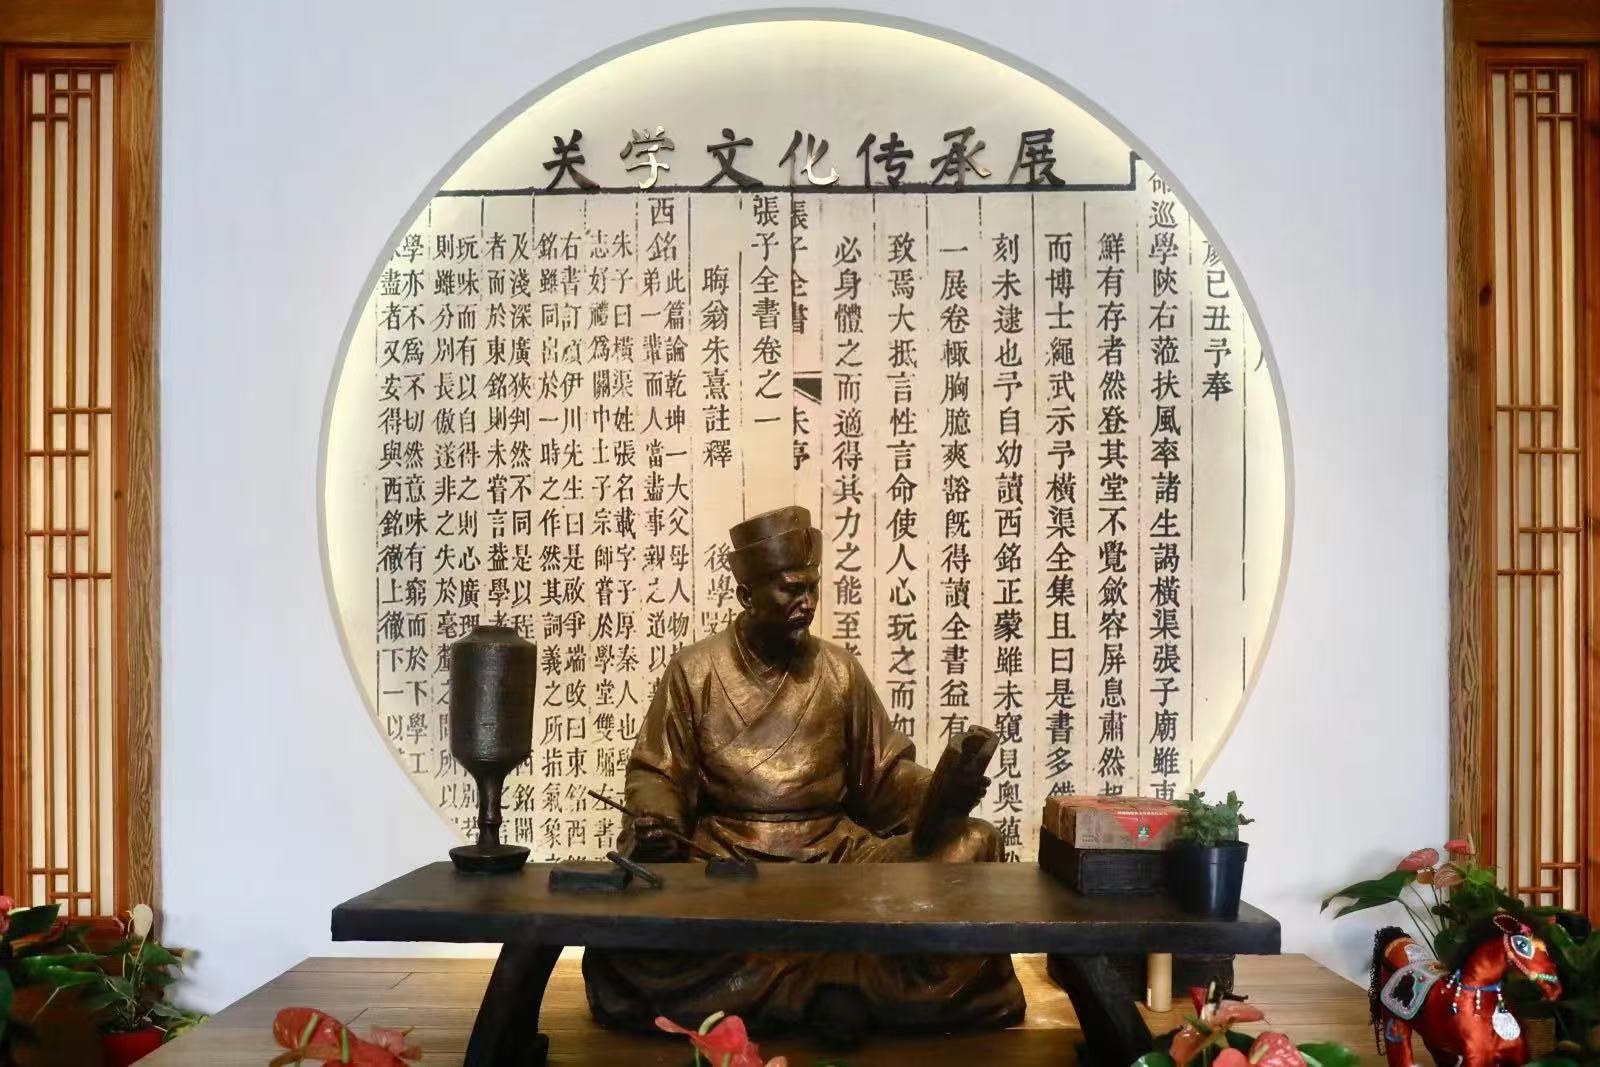 关学文化传承展
已丑予奉
命巡學陝右蒞扶風率諸生謁橫渠張子廟雖東
鮮有存者然登其堂不覺斂容屏息肅然起
而博士繩武示予橫渠全集且曰是書多錯
刻未逮也予自幼讀西銘正蒙雖未窺見奧蘊
一展卷輙胸臆爽豁旣得讀全書益有
致焉大抵言性言命使人心玩之而如
必身體之而適得其力之能至
張子全書 朱序
張子全書卷之一
晦翁朱熹註釋
後學
西銘
此篇論乾坤一大父母人物
弟一輩而人當盡事親之道以
朱子曰橫渠姓張名載字子厚秦人也學
志好禮為關中士子宗師嘗於學堂雙牖左書
右書訂頑伊川先生曰是啟爭端改曰東銘西
銘雖同出於一時之作然其詞義之所指氣象
及淺深廣狹判然不同是以程
者而於東銘則未嘗言益學者
玩味而有以自得之則心廣理
則雖分別長傲遂非之失於毫釐之間所以
學亦不為不切然意味有窮而於下學工
盡者又安得與西銘徹上徹下一以